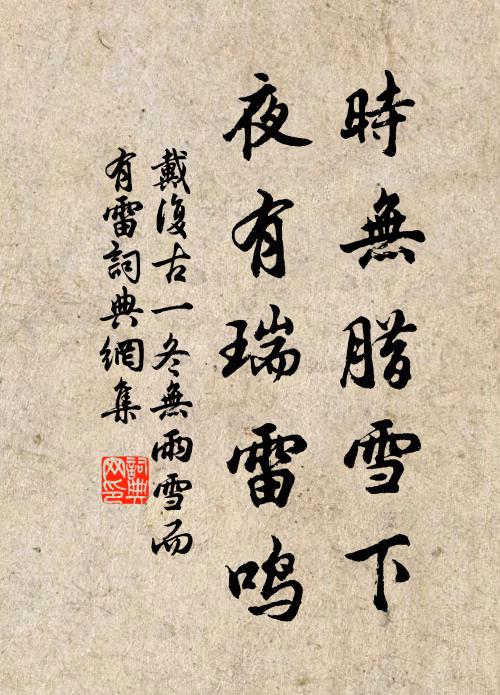 時無腊雪下
夜有瑞雷鸣
戴復古一冬無雨雪而
有雷詞典網集
詞典
网印